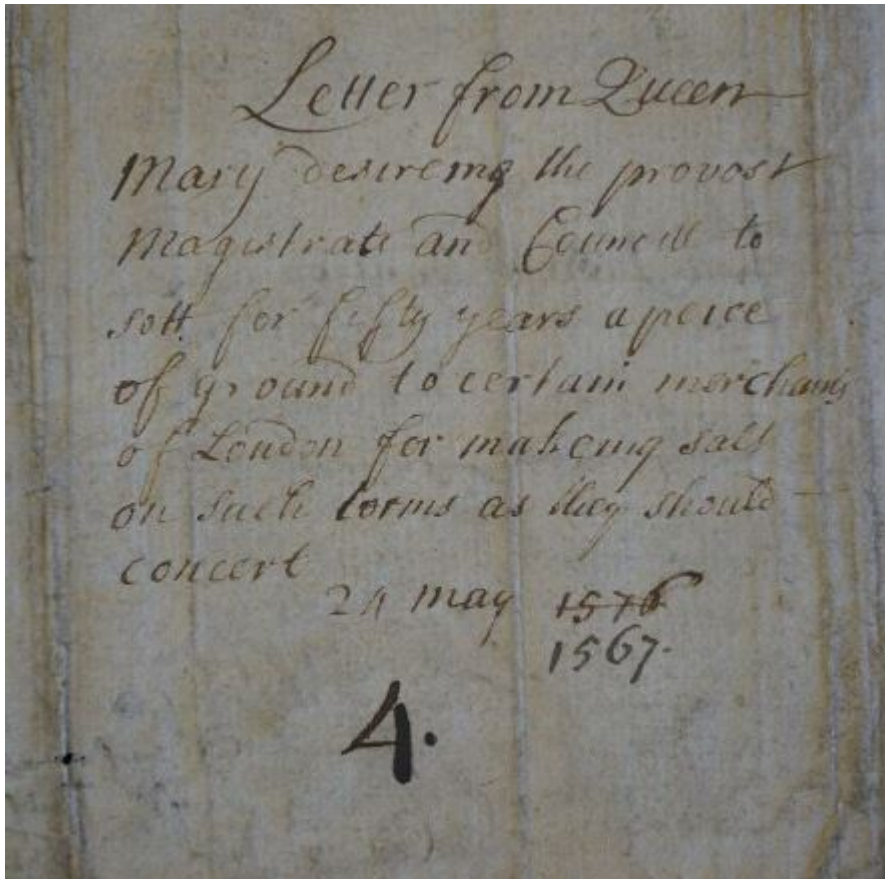 Letter from Queen
Mary desireing the provost
Magistrats and Councill to
sett for fifty years a peice
of ground to certain merchants
of London for makeing salt
on such terms as they should
concert
24 May 1576
1567.
4.